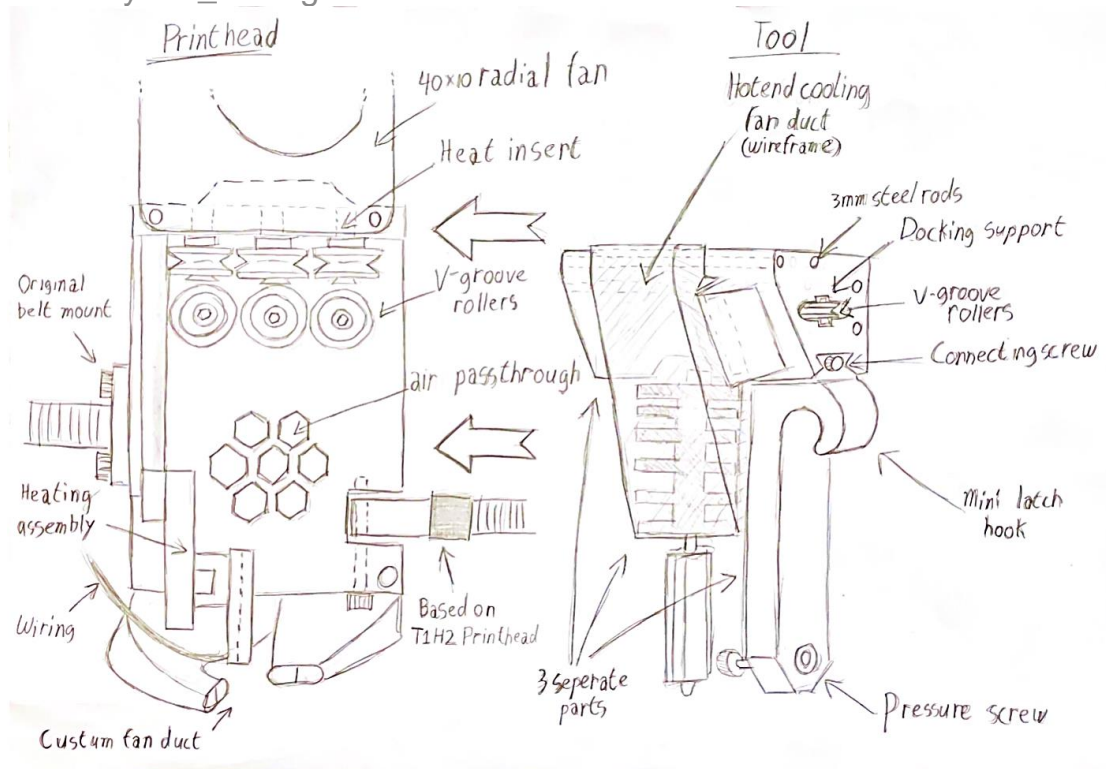 Printhead
40x10 radial fan
Heat insert
V-groove
rollers
Original
belt mount
air passthrough
Heating
assembly
Wiring
Based on
T1H2 Printhead
Custum fan duct
Tool
Hotend cooling
fan duct
(wireframe)
3mm steel rods
Docking support
V-groove
rollers
Connecting screw
Mini latch
hook
3 seperate
parts
Pressure screw